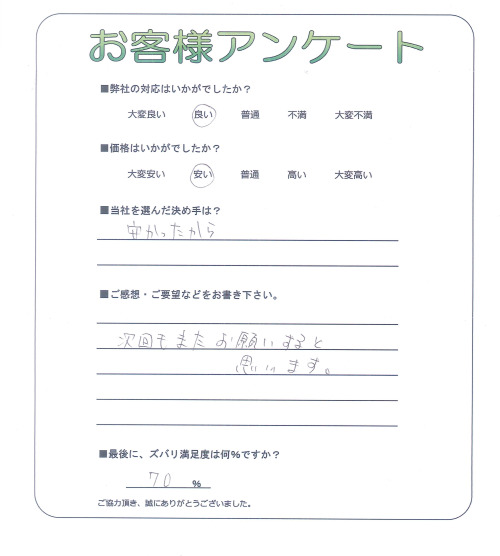 お客様アンケート
■弊社の対応はいかがでしたか？
大変良い 良い 普通 不満 大変不満
■価格はいかがでしたか？
大変安い 安い 普通 高い 大変高い
■当社を選んだ決め手は？
安かったから
■ご感想・ご要望などをお書き下さい。
次回もまたお願いすると
思います。
■最後に、ズバリ満足度は何%ですか？
70 %
ご協力頂き、誠にありがとうございました。